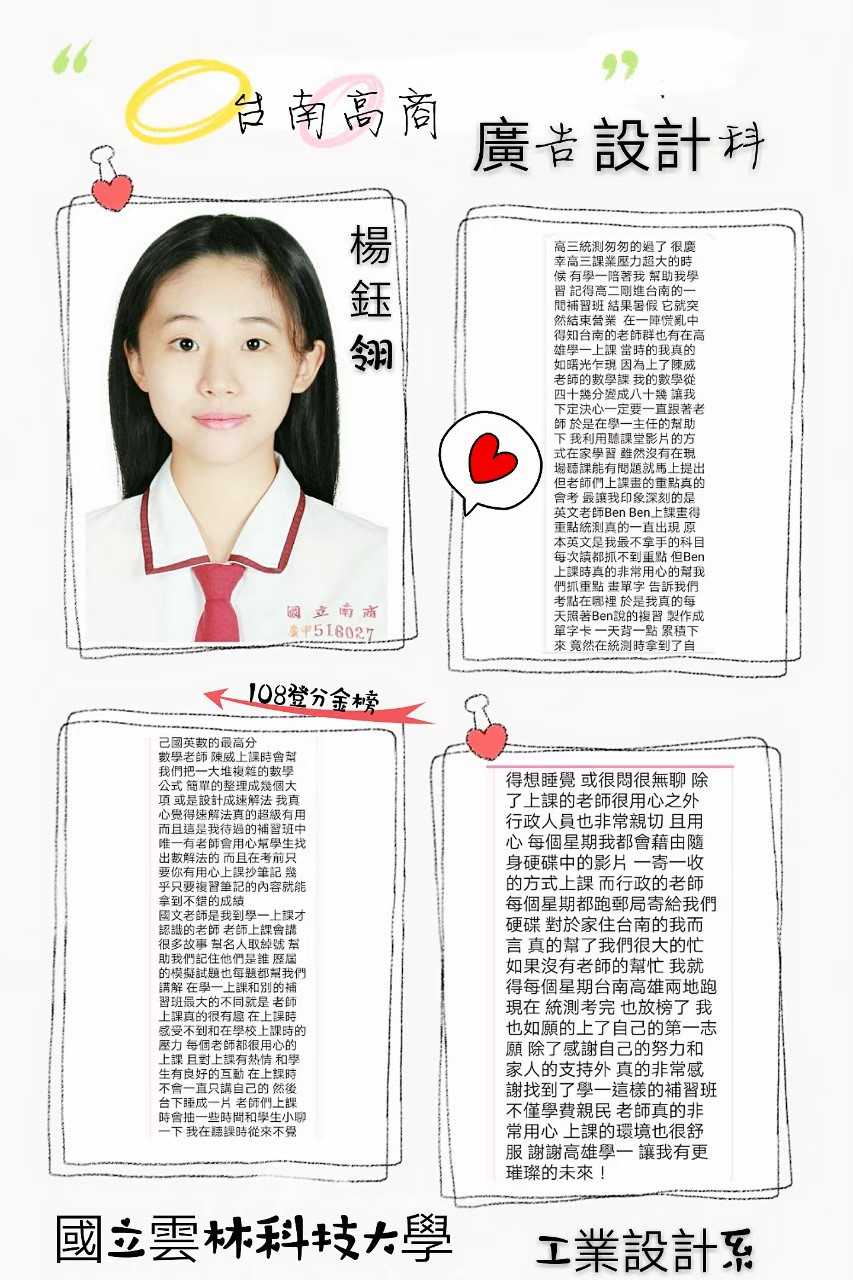 “ ”
台南高商
廣告設計科
楊鈺翎
國立南商
廣甲516027
高三統測匆匆的過了 很慶
幸高三課業壓力超大的時
候 有學一陪著我 幫助我學
習 記得高二剛進台南的一
間補習班 結果暑假 它就突
然結束營業 在一陣慌亂中
得知台南的老師群也有在高
雄學一上課 當時的我真的
如曙光乍現 因為上了陳威
老師的數學課 我的數學從
四十幾分變成八十幾 讓我
下定決心一定要一直跟著老
師 於是在學一主任的幫助
下 我利用聽課堂影片的方
式在家學習 雖然沒有在現
場聽課能有問題就馬上提出
但老師們上課畫的重點真的
會考 最讓我印象深刻的是
英文老師Ben Ben上課畫得
重點統測真的一直出現 原
本英文是我最不拿手的科目
每次讀都抓不到重點 但Ben
上課時真的非常用心的幫我
們抓重點 畫單字 告訴我們
考點在哪裡 於是我真的每
天照著Ben說的複習 製作成
單字卡 一天背一點 累積下
來 竟然在統測時拿到了自
108登分金榜
己國英數的最高分
數學老師 陳威上課時會幫
我們把一大堆複雜的數學
公式 簡單的整理成幾個大
項 或是設計成速解法 我真
心覺得速解法真的超級有用
而且這是我待過的補習班中
唯一有老師會用心幫學生找
出數解法的 而且在考前只
要你有用心上課抄筆記 幾
乎只要複習筆記的內容就能
拿到不錯的成績
國文老師是我到學一上課才
認識的老師 老師上課會講
很多故事 幫名人取綽號 幫
助我們記住他們是誰 歷屆
的模擬試題也每題都幫我們
講解 在學一上課和別的補
習班最大的不同就是 老師
上課真的很有趣 在上課時
感受不到和在學校上課時的
壓力 每個老師都很用心的
上課 且對上課有熱情 和學
生有良好的互動 在上課時
不會一直只講自己的 然後
台下睡成一片 老師們上課
時會抽一些時間和學生小聊
一下 我在聽課時從來不覺
得想睡覺 或很悶很無聊 除
了上課的老師很用心之外
行政人員也非常親切 且用
心 每個星期我都會藉由隨
身硬碟中的影片 一寄一收
的方式上課 而行政的老師
每個星期都跑郵局寄給我們
硬碟 對於家住台南的我而
言 真的幫了我們很大的忙
如果沒有老師的幫忙 我就
得每個星期台南高雄兩地跑
現在 統測考完 也放榜了 我
也如願的上了自己的第一志
願 除了感謝自己的努力和
家人的支持外 真的非常感
謝找到了學一這樣的補習班
不僅學費親民 老師真的非
常用心 上課的環境也很舒
服 謝謝高雄學一 讓我有更
璀璨的未來！
國立雲林科技大學
工業設計系